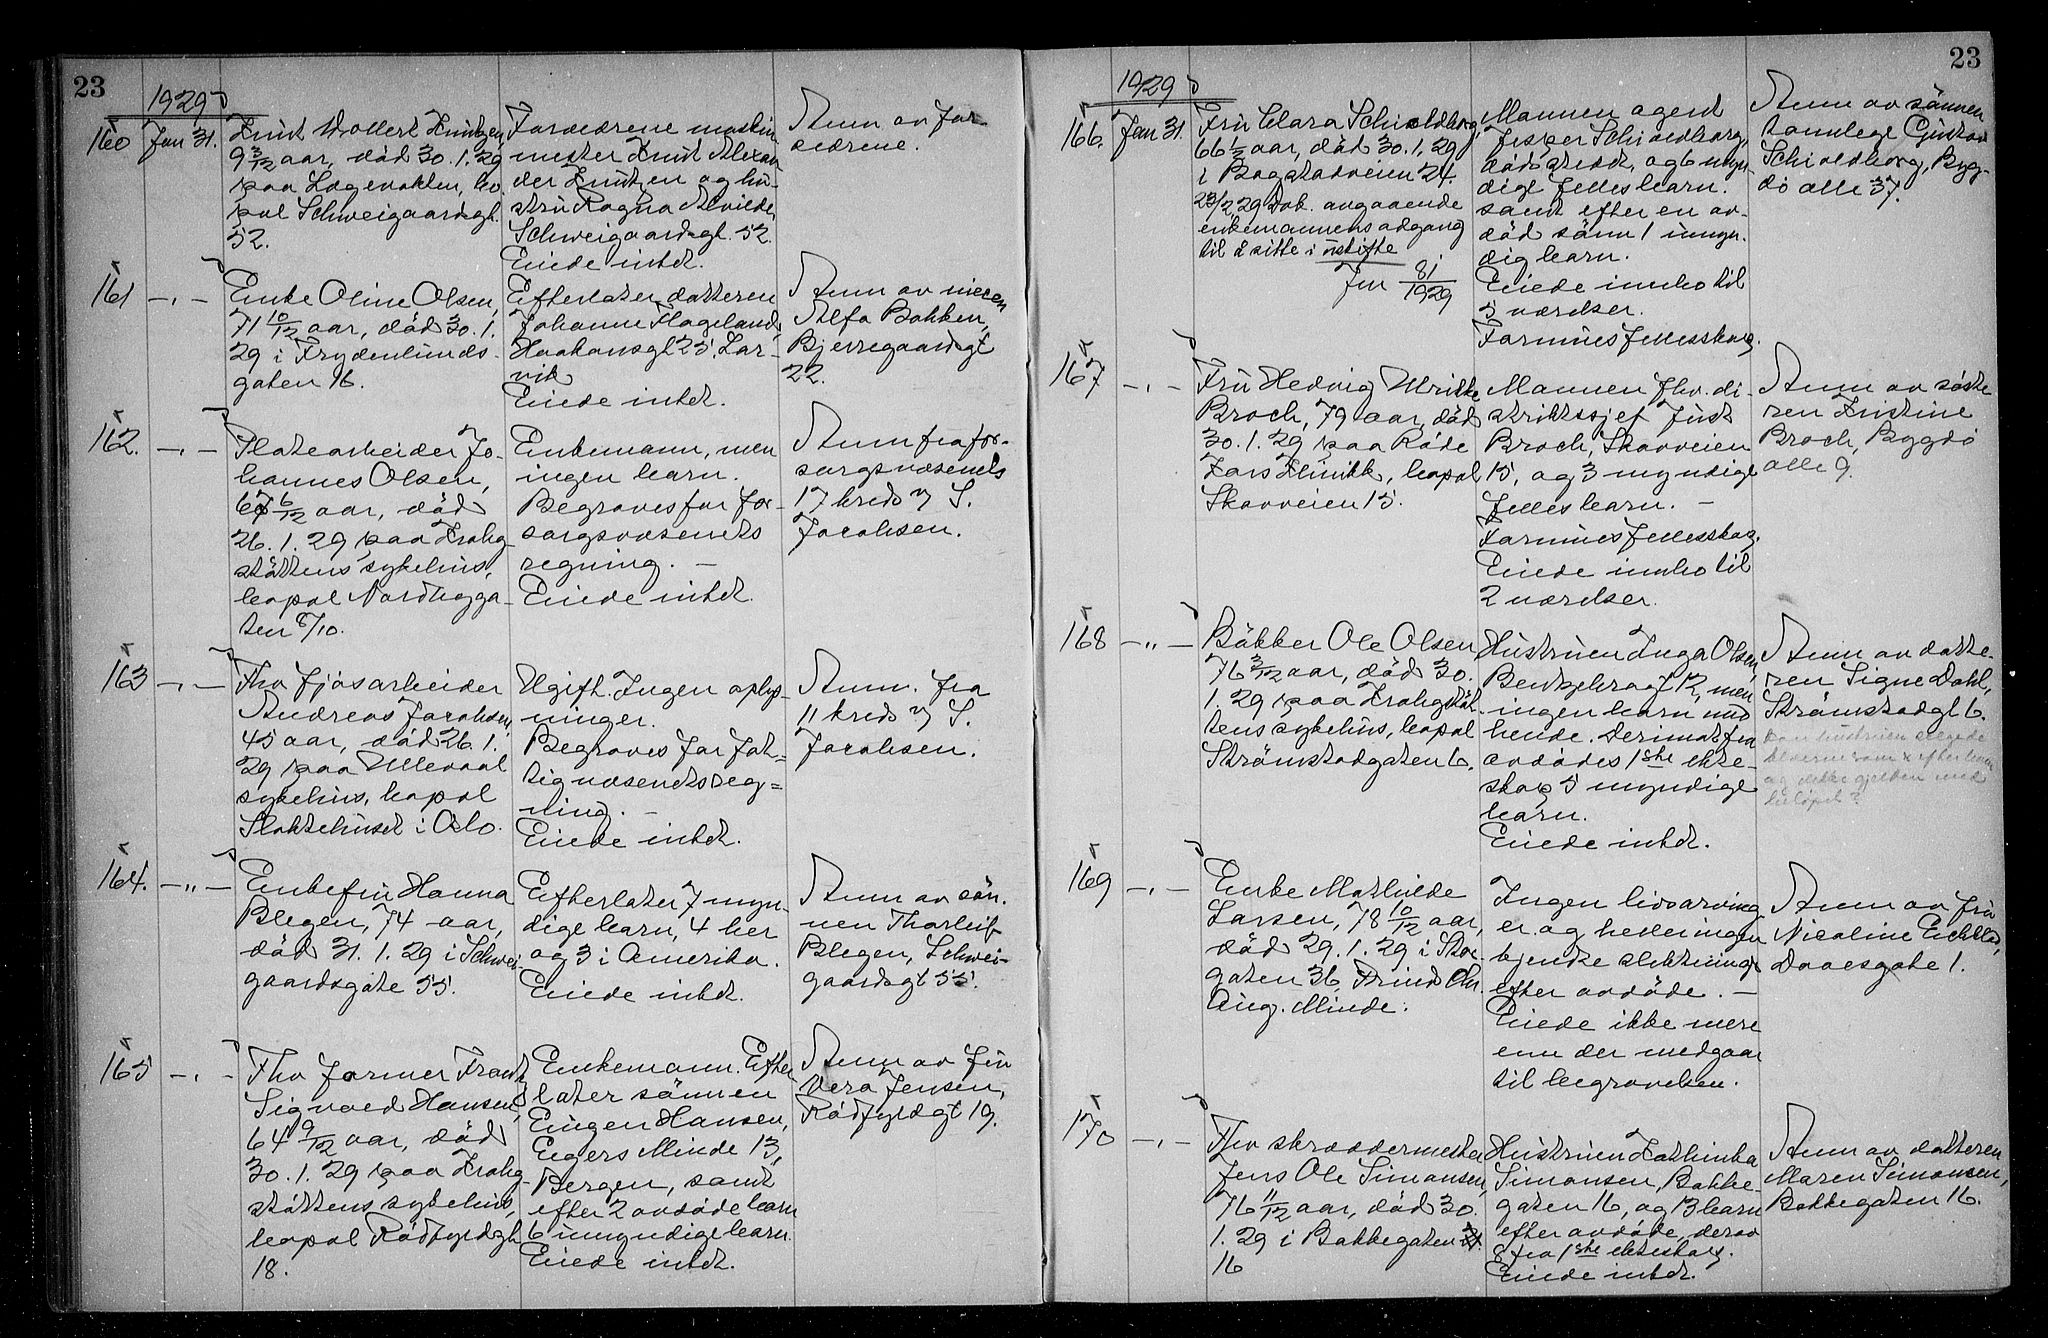 23
1929
160 Jan 31.
Knut Wollert Knutzen,
9 3/12 aar, död 30.1.29
paa Lægevakten, bo
pel Schweigaardsgt.
52.
Forældrene maskin
mester Knut Alexan
der Knutzen og hu-
stru Ragna Alvilde,
Schweigaardsgt. 52.
Eiede intet.
Anm av for-
ældrene.
161 -"-
Enke Oline Olsen,
71 10/12 aar, död 30.1.
29 i Frydenlunds-
gaten 16.
Efterlater datteren
Johanne Hageland,
Haakonsgt 25, Lar-
vik
Eiede intet.
Anm av niesen
Alfa Bakken,
Bjerregaardsgt
22.
162. -"-
Platearbeider Jo-
hannes Olsen,
67 6/12 aar, död
26.1.29 paa Krohg-
støttens sykehus,
bopel Nordbygga-
ten 8/10.
Enkemann, men
ingen barn.
Begraves for for-
sorgsvæsenets
regning. -
Eiede intet.
Anm fra for-
sorgsvæsenets
17 kreds v/ S.
Jacobsen.
163 -"-
Fhv fjøsarbeider
Andreas Jacobsen,
45 aar, död 26.1.
29 paa Ullevaal
sykehus, bopel
Slaktehuset i Oslo.
Ugift. Ingen oplys-
ninger.
Begraves for fat-
tigvæsenets reg-
ning. -
Eiede intet.
Anm. fra
11 kreds v/ S.
Jacobsen.
164. -"-
Enkefru Hanna
Blegen, 74 aar,
död 31.1.29 i Schwei-
gaardsgate 55.
Efterlater 7 myn-
dige barn, 4 her
og 3 i Amerika.
Eiede intet.
Anm av søn-
nen Thorleif
Blegen, Schwei-
gaardsgt 55.
165 -"-
Fhv former Frantz
Sigvard Hansen,
64 9/12 aar, död
30.1.29 paa Krohg-
støttens sykehus,
bopel Rödfyldgt
18.
Enkemann. Efter
later sønnen
Eugen Hansen,
Eegers Minde 13,
Bergen, samt
efter 2 avdøde barn
6 umyndige barn.
Eiede intet.
Anm av fru
Vera Jensen,
Rödfyldgt 19.
23
1929
166. Jan 31.
Fru Clara Schioldborg,
66 1/2 aar, död 30.1.29
i Bogstadveien 24.
23/2 29 Dok. angaaende
enkemannens adgang
til å sitte i uskifte
Jnr 81/1929
Mannen agent
Jesper Schioldborg,
død sted, og 6 myn
dige felles barn.
samt efter en av-
død sønn 1 umyn-
dig barn.
Eiede innbo til
5 værelser.
Formues fellesskap.
Anm av sønnen
tannlege Gustav
Schioldborg, Byg-
dö alle 37.
167 -"-
Fru Hedvig Ulrikke
Broch, 79 aar, död
30.1.29 paa Röde
Kors Klinikk, bopel
Skovveien 15.
Mannen fhv. di-
striktssjef Just
Broch, Skovveien
15, og 3 myndige
felles barn. -
Formues fellesskap.
Eiede innbo til
2 værelser.
Anm av søste
ren Kristine
Broch, Bygdö
alle 9.
168 -"-
Bökker Ole Olsen,
76 3/12 aar, död 30.
1.29 paa Krohgstøt-
tens sykehus, bopel
Strömstadgaten 6.
Hustruen Inga Olsen,
12, men
ingen barn med
hende. Derimot fra
avdødes 1ste ekte-
skap 5 myndige
barn.
Eiede intet.
Anm av datte-
ren Signe Dahl,
Strömstadgt 6.
169 -"-
Enke Mathilde
Larsen, 78 10/12 aar,
död 29.1.29 i Stor
gaten 36, Prinds Chr.
Aug. Minde.
Ingen livsarving
er og heller ingen
kjendte slektninge
efter avdøde. -
Eiede ikke mere
enn der medgaar
til begravelsen.
Anm av fru
Nicoline Eichblad,
Daaesgate 1.
170 -"-
Fhv skræddermester
Jens Ole Simonsen,
76 11/12 aar, död 30.
1.29 i Bakkegaten
16
Hustruen Kathinka
Simonsen, Bakke-
gaten 16, og 13 barn
efter avdøde, derav
8 fra 1ste ekteskap.
Eiede intet.
Anm av datteren
Maren Simonsen,
Bakkegaten 16.